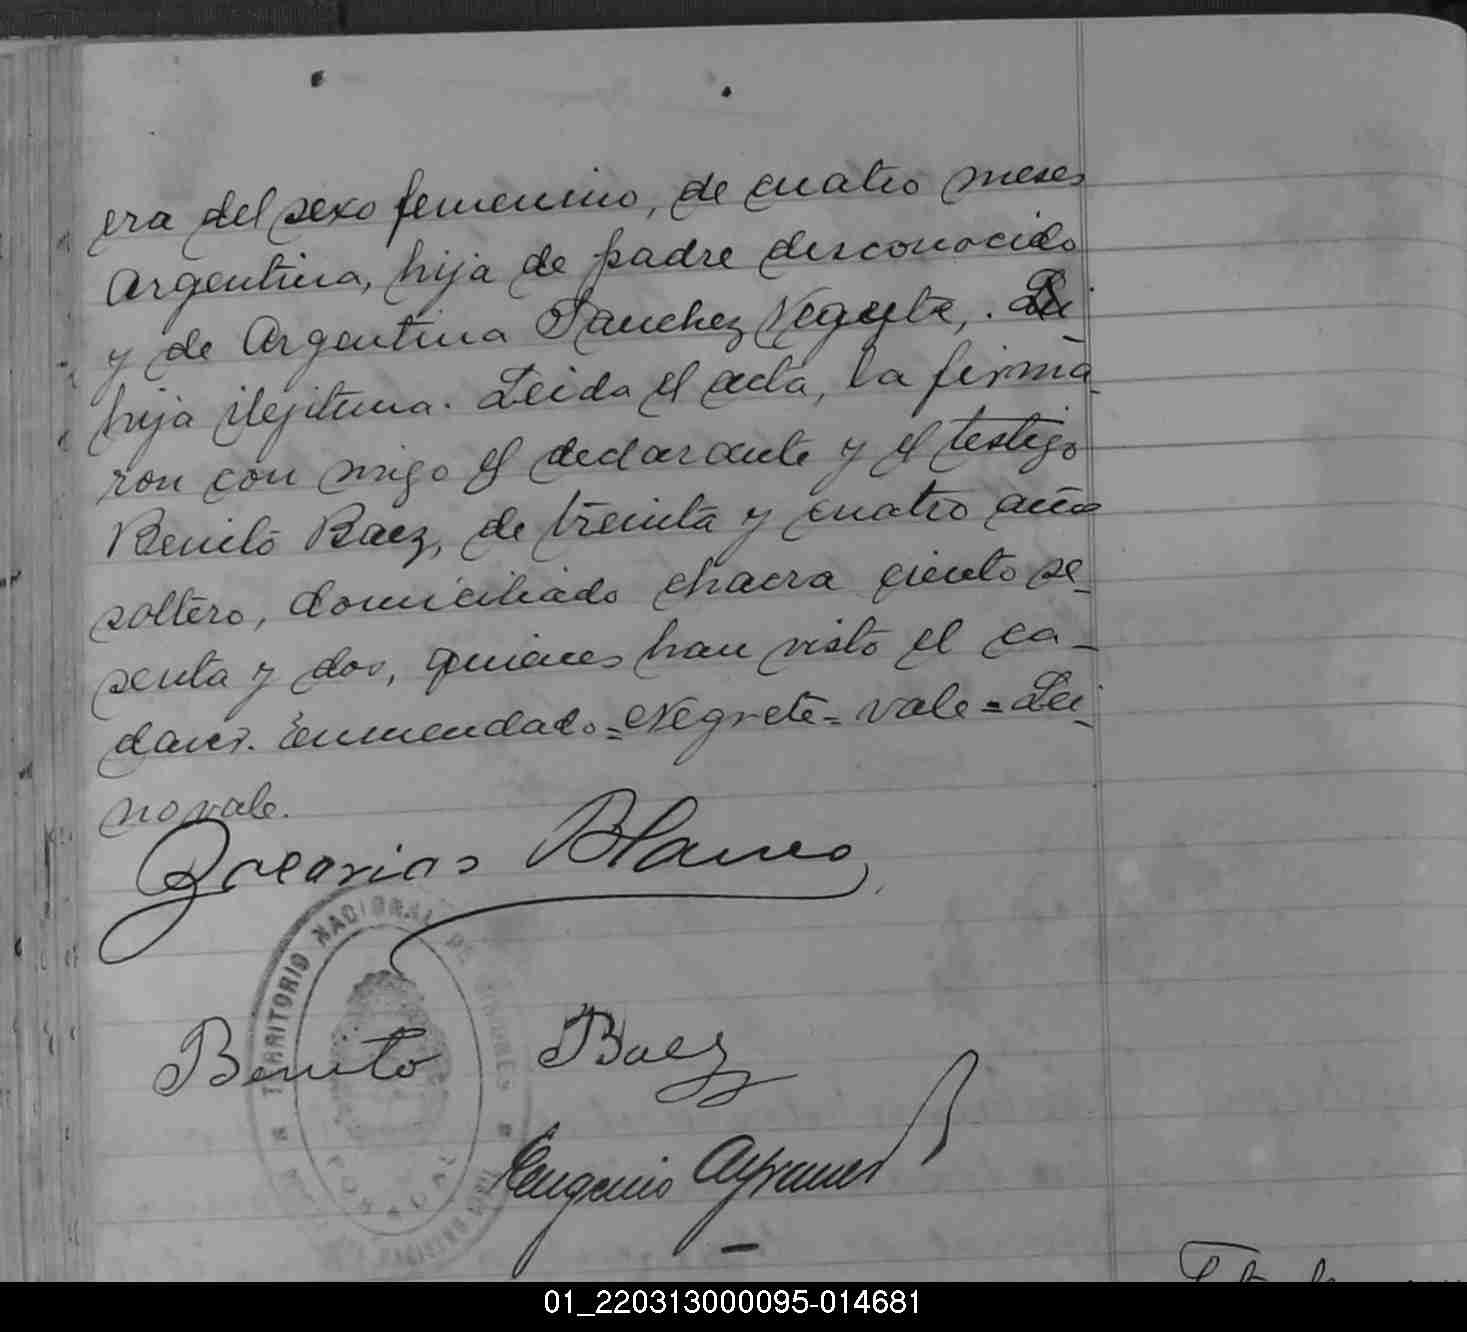 era del sexo femenino, de cuatro meses
Argentina, hija de padre desconocido
y de Argentina Sanchez Negrete, . Lei
hija ilejitima. Leida el acta, la firma
ron con migo el declarante y el testigo
Benito Baez, de treinta y cuatro años
soltero, domiciliado chacra ciento se_
senta y dos, quienes han visto el ca_
daver. Enmendado=Negrete=vale=Lei
no vale.
Blanco
TERRITORIO NACIONAL DE
Benito Baez
Eugenio
01_220313000095-014681